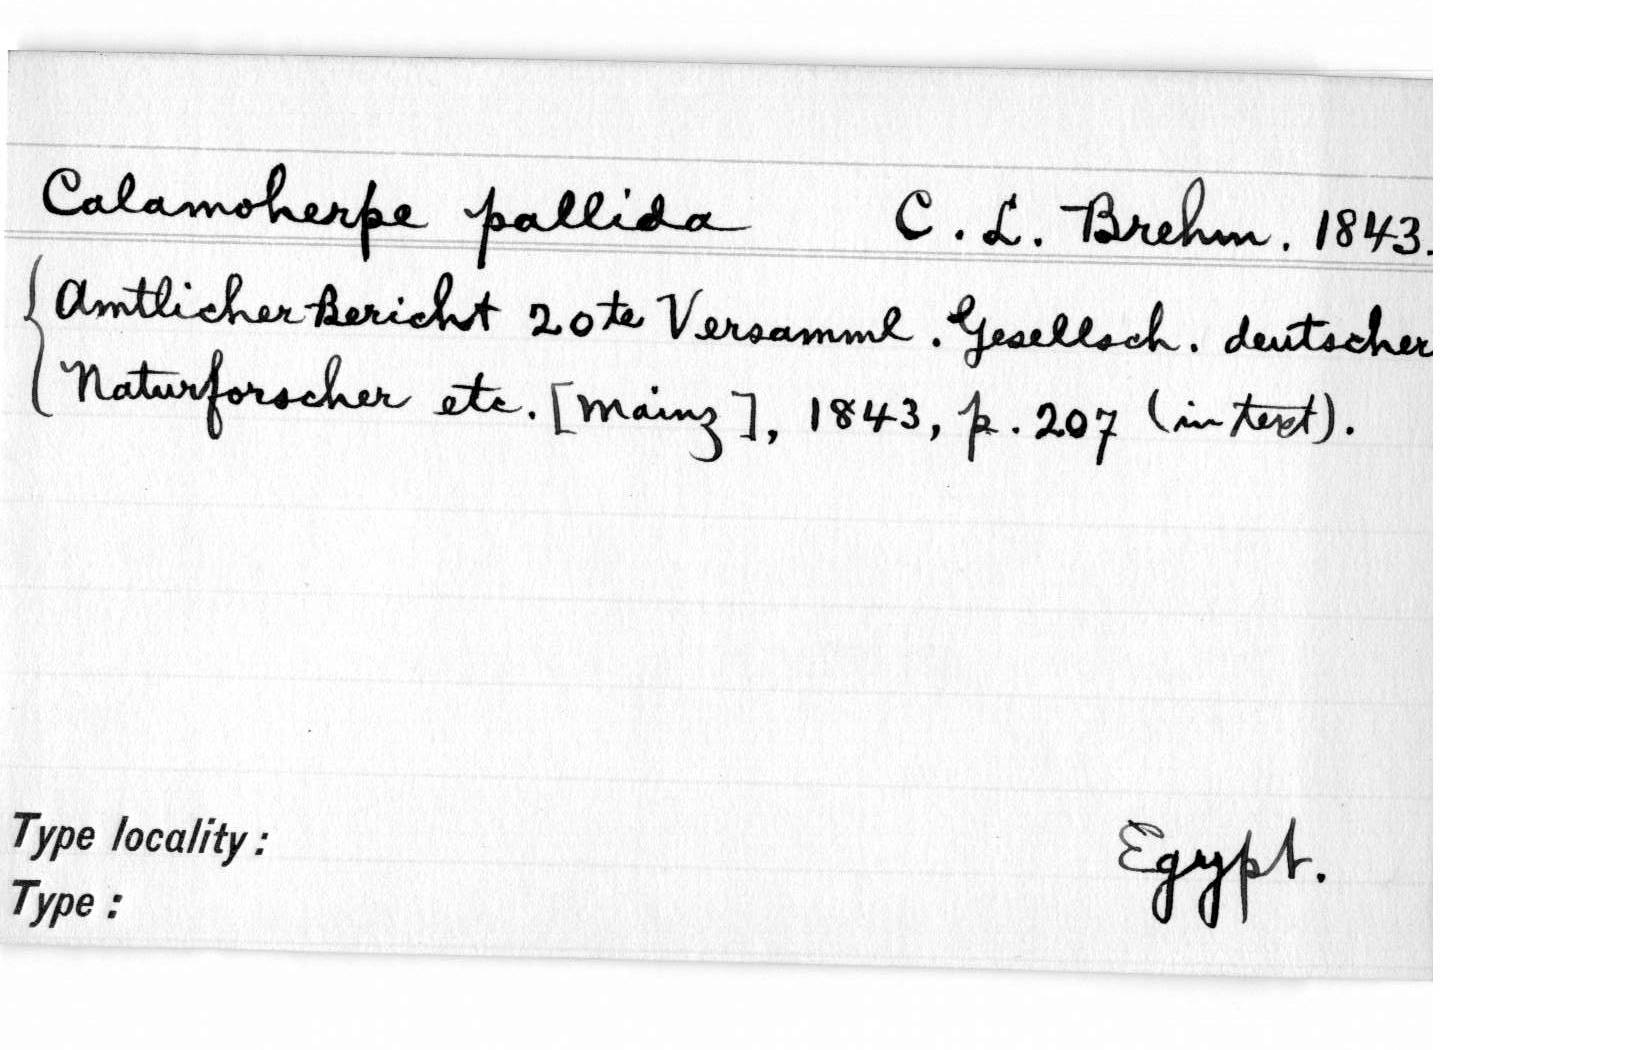 Calamoherpe pallida C. L. Brehm. 1843.
Amtlicher Bericht 20te Versamml. Gesellsch. deutscher
Naturforscher etc. [Mainz], 1843, p. 207 (in text).
Type locality: Egypt.
Type: